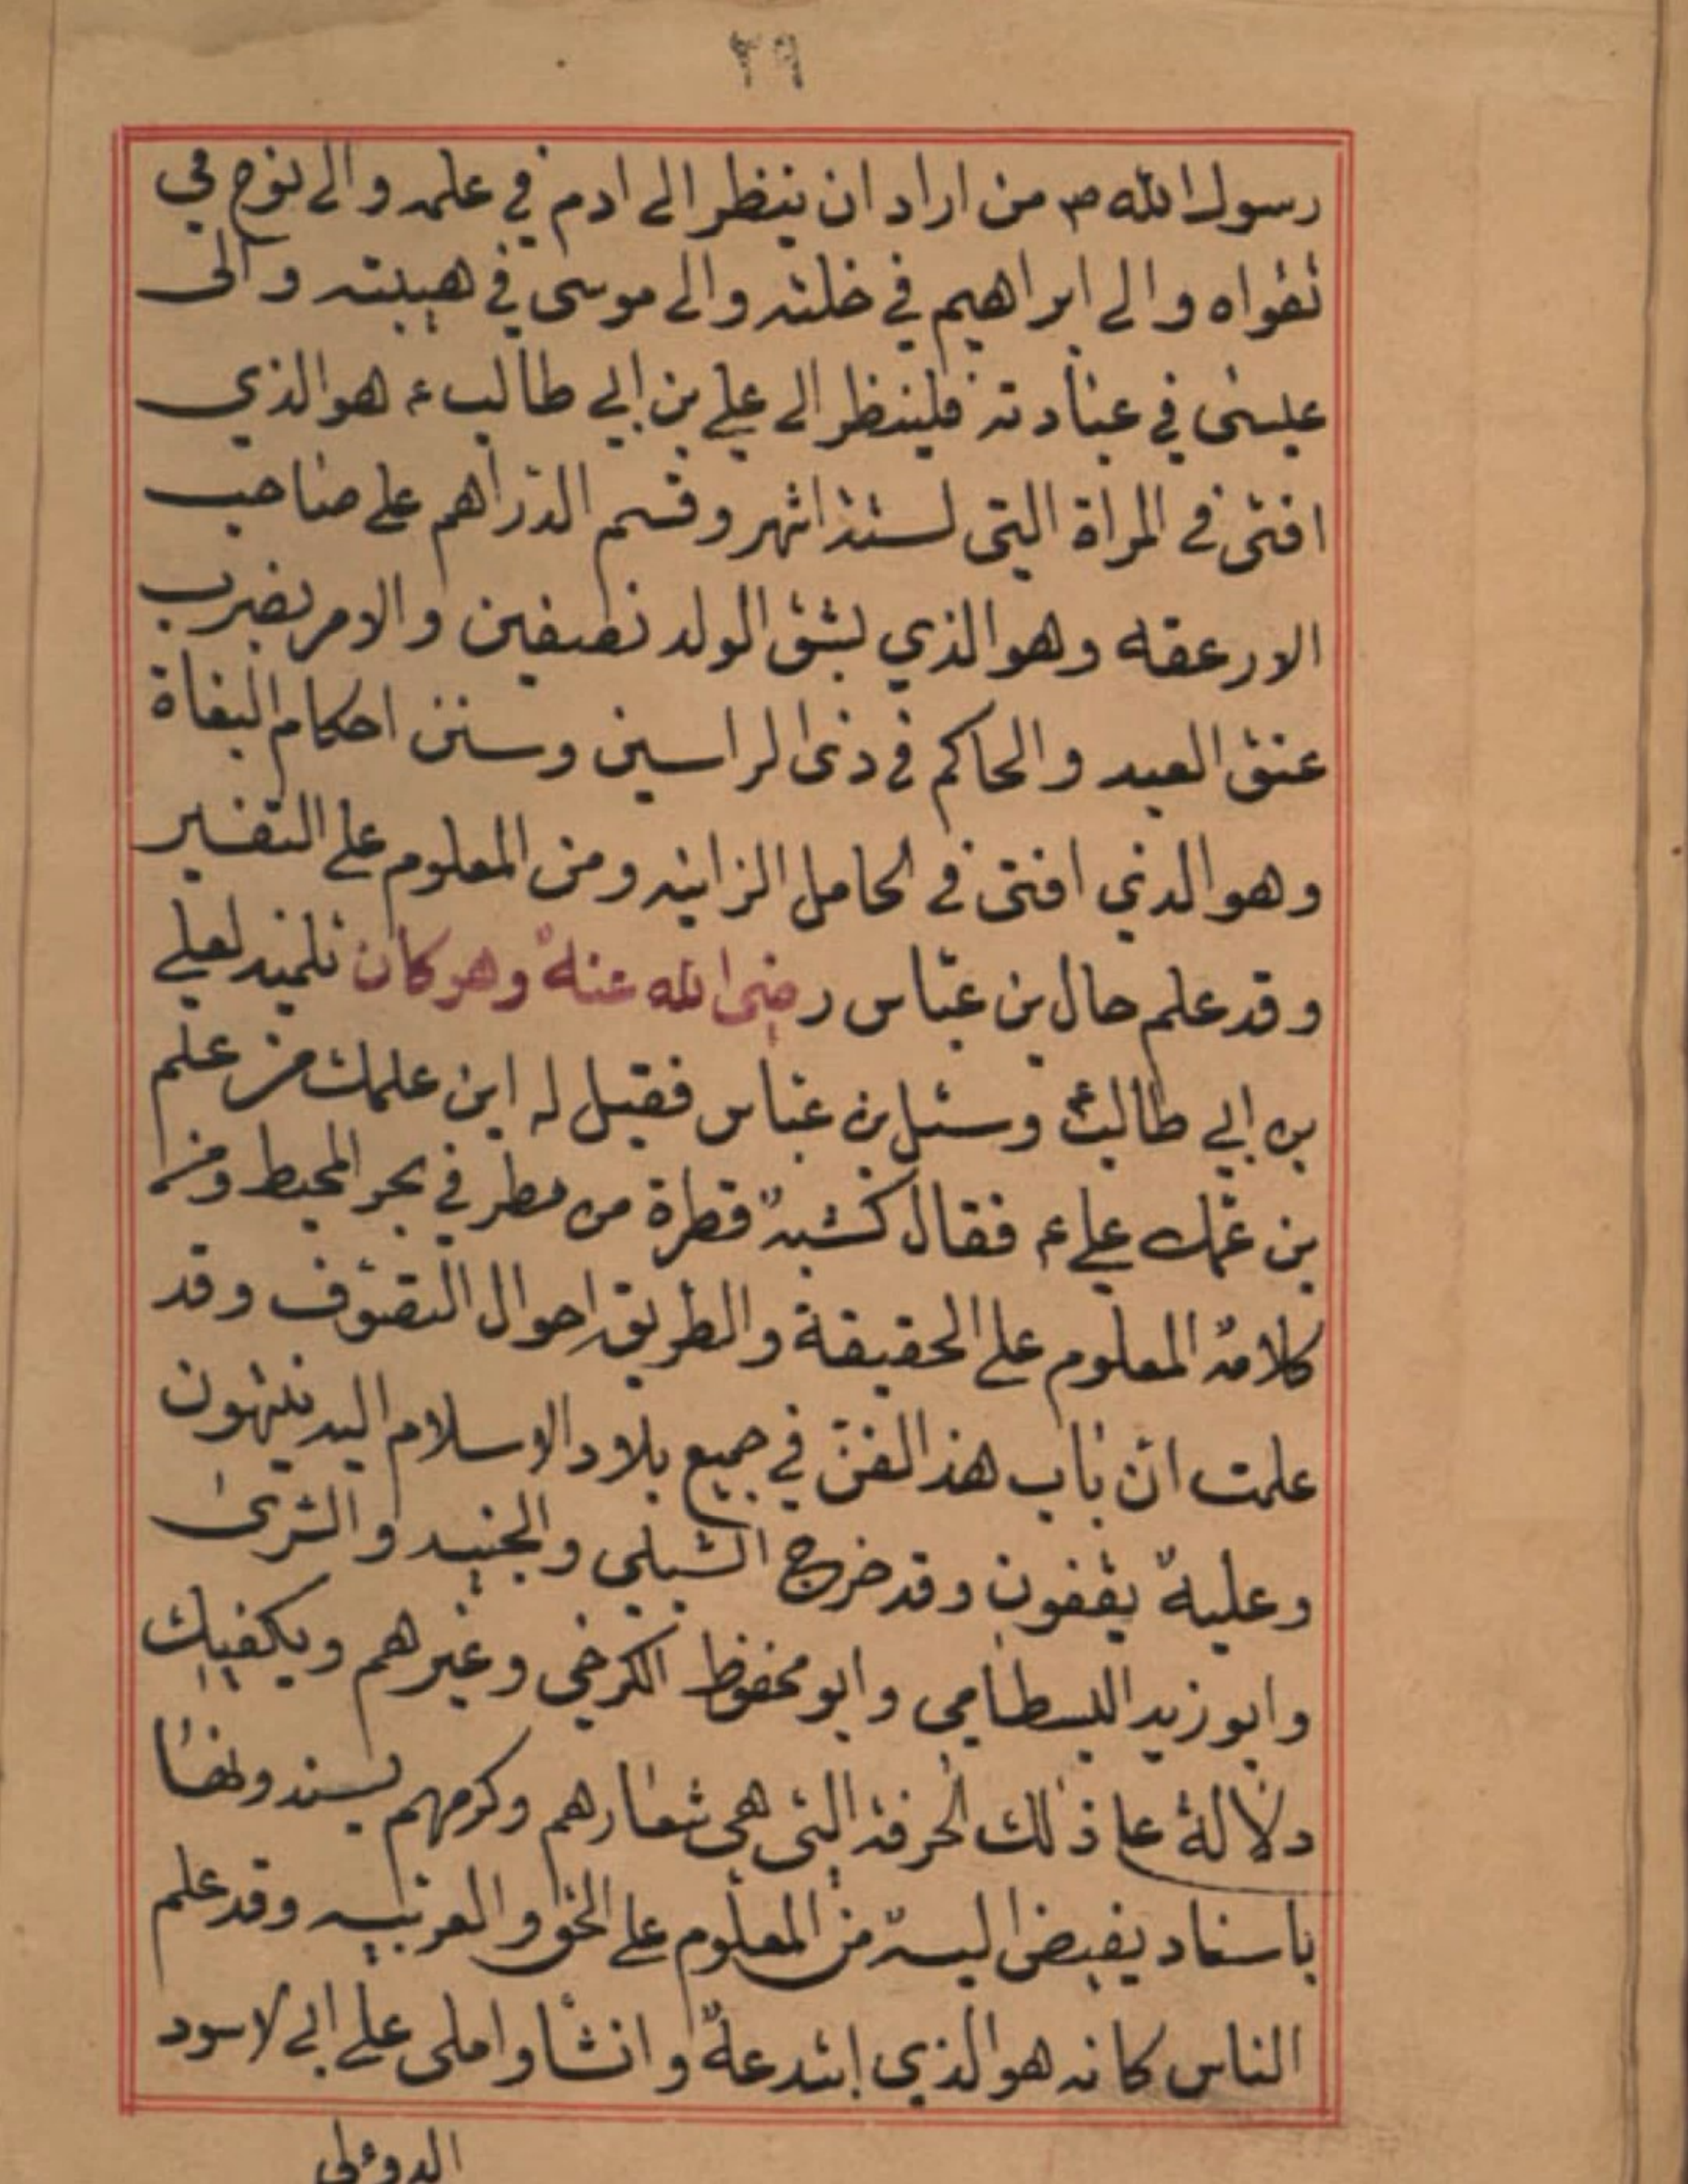 ٢٩
رسول الله ص من اراد ان ينظر الى ادم في علمه والى نوح في
تقواه والى ابراهيم في خلته والى موسى في هيبته والى
عيسى في عبادته فلينظر الى علي بن ابي طالب ع هو الذي
افتى في المراة التي لستة اشهر وقسم الدراهم على صاحب
الارعفه وهو الذي بشق الولد نصفين والامر بضرب
عنق العبد والحاكم في ذى الراسين وسنن احكام البغاة
وهو الذي افتى في الحامل الزانيه ومن المعلوم على التفسير
وقد علم حال بن عباس رضى الله عنه وهو كان تلميذ لعلي
بن ابي طالب ع وسئل بن عباس فقيل له اين علمك من علم
بن عمك علي ع فقال كشبه قطرة من مطر في بحر المحيط ومن
كلامه المعلوم على الحقيقة والطريق احوال التصوف وقد
علمت ان باب هذ الفن في جميع بلاد الاسلام اليه ينتهون
وعليه يقفون وقد خرج الشبلي والجنيد والسرى
وابو زيد البسطامي وابو محفوظ الكرخي وغيرهم ويكفيك
دلالة على ذلك الخرقة التي هي شعارهم وكرمهم يسندونها
باسناد يفيض اليه من المعلوم على النحو والعربيه وقد علم
الناس كانه هو الذي ابتدعه وانشا واملى على ابي لاسود
الدوءلي